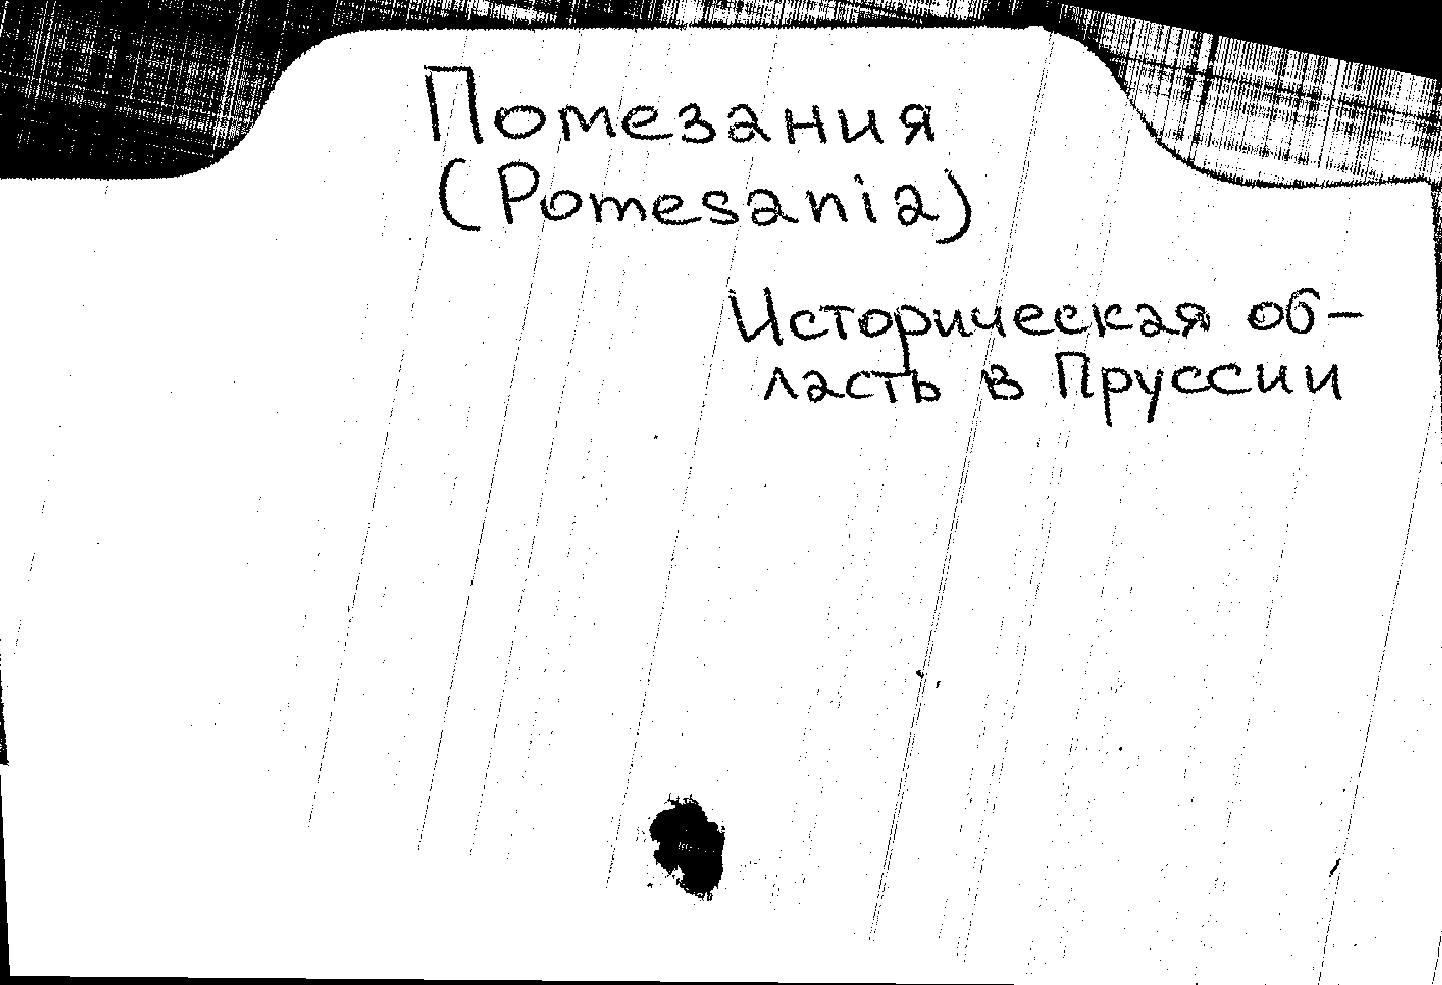 Помезания
(Pomesania)
Историческая об-
ласть в Пруссии